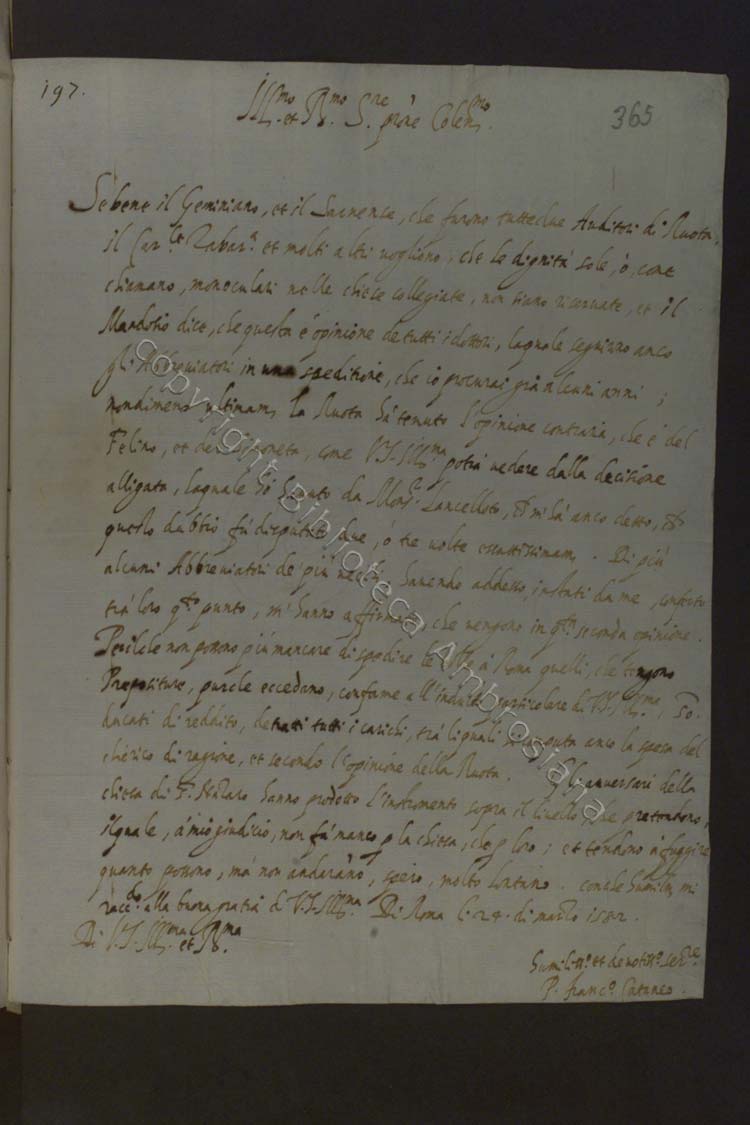 197.
365
Ill.mo et R.mo S.re prone Colen.mo
Se bene il Geminiano, et il Sarnense, che furono tutte due Auditori di Ruota,
il Car.le Zabar.a et molti altri vogliono, che le dignità sole, ò, come
chiamano, monoculari nelle chiese collegiate, non siano riservate, et il
Mandosio dice, che questa è opinione de tutti i dottori, laquale seguirno anco
gli Abbreviatori in una speditione, che io procurai già alcuni anni;
nondimeno ultimam. la Ruota hà tenuto l'opinione contraria, che è del
Felino, et del, come V.S. Ill.ma potrà vedere dalla decisione
alligata, laquale hò havuto da Mons.r Lancelloto, et m'hà anco detto, che
questo dubbio fù disputato due, ò tre volte esattissimam. Di più
alcuni Abbreviatori de più vecchi, havendo addesso, instati da me, conferito
trà loro q.to punto, m'hanno affirmato, che vengono in q.ta seconda opinione.
Perilche non possono più mancare di spedire le bolle à Roma quelli, che tengono
Prepositure, purche eccedano, conforme all'Indulto particolare di V.S. Ill.ma, 50.
ducati di reddito, detratti tutti i carichi, trà liquali si computa anco la spesa del
chierico di ragione, et secondo l'opinione della Ruota. Gli aversari della
chiesa di S. Nazaro hanno prodotto l'instrumento sopra il livello, che pretendono,
ilquale, à mio giudicio, non fà manco p la chiesa, che p loro; et tendono à fuggire
quanto possono, mà non andaranno, spero, molto lontano. con che humilm. mi
racc.do alla buona gratia di V.S. Ill.ma. Di Roma li. 24. di marzo 1582.
Di V.S. Ill.ma et R.ma
humiliss.o et devotiss.o ser.re
P. franc.o Cataneo.
copyright Biblioteca Ambrosiana